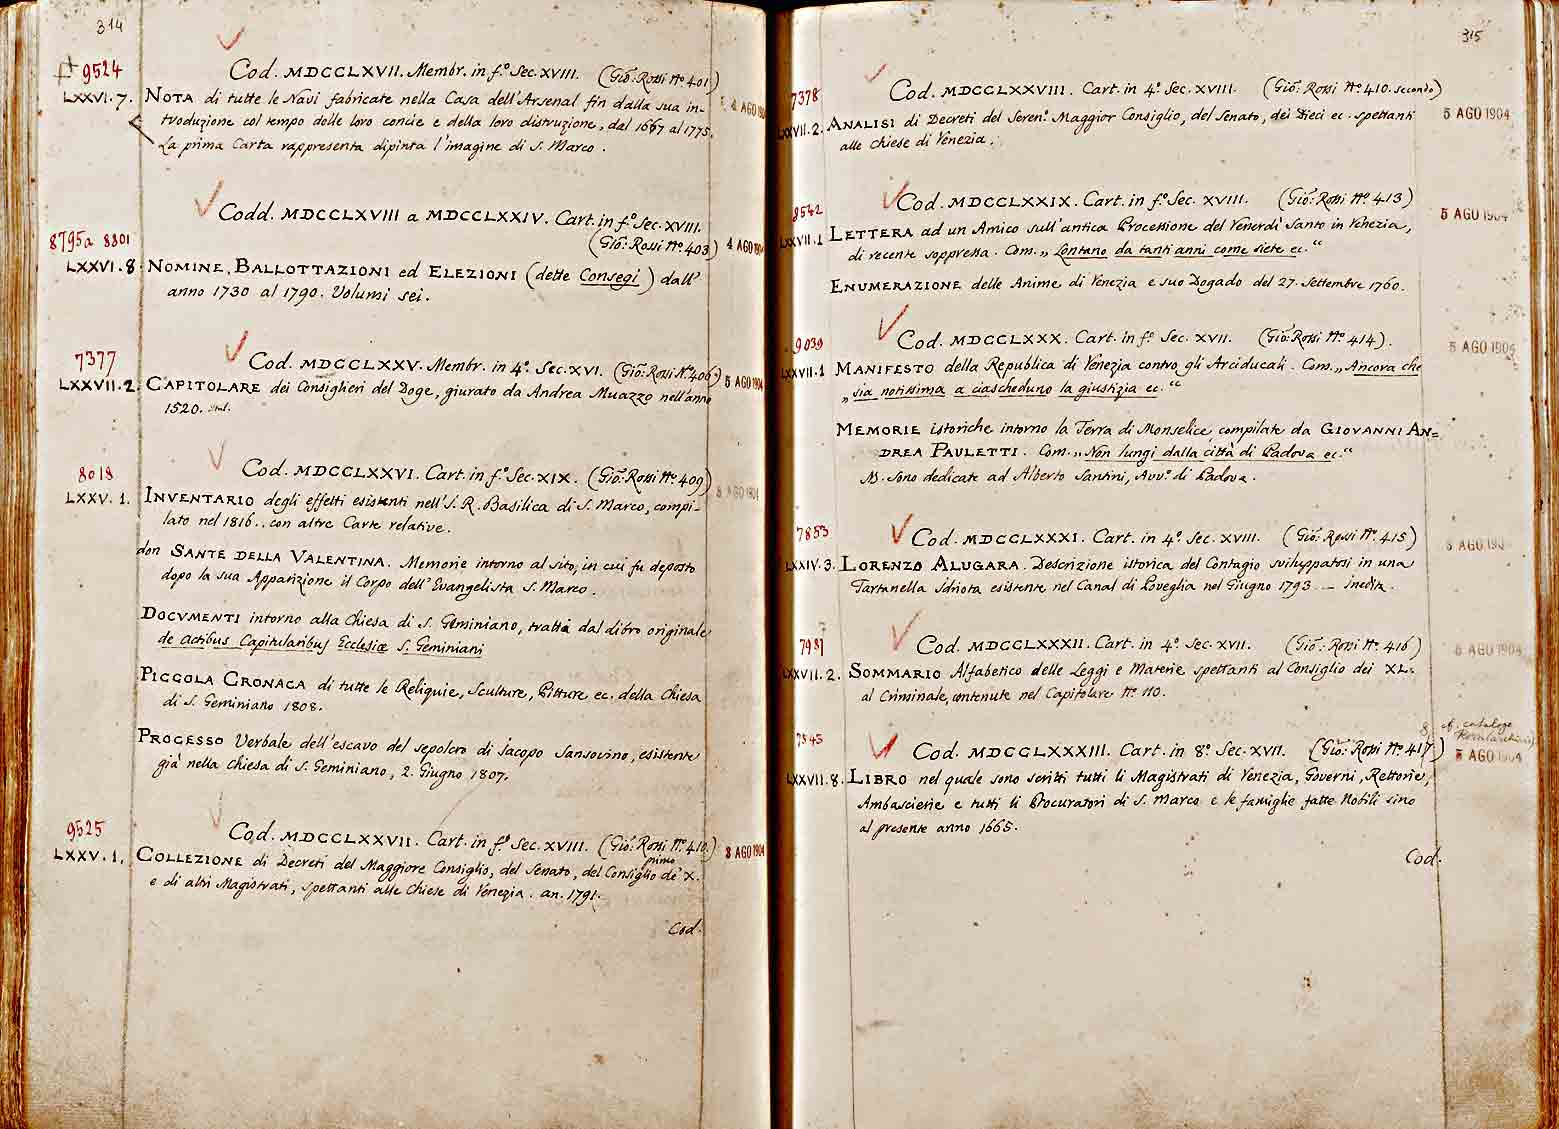 314
9524
Cod. MDCCLXVII. Membr. in f.º Sec. XVIII. (Gio: Rossi Nº 401)
LXXVI. 7. NOTA di tutte le Navi fabricate nella Casa dell'Arsenal fin dalla sua in-
troduzione col tempo delle loro concie e della loro distruzione, dal 1667 al 1775.
La prima Carta rappresenta dipinta l'imagine di S. Marco.
4 AGO
Codd. MDCCLXVIII a MDCCLXXIV. Cart. in f.º Sec. XVIII.
8795a 8801
(Gio: Rossi Nº 403)
4 AGO 1904
LXXVI. 8. NOMINE, BALLOTTAZIONI ed ELEZIONI (dette Consegi) dall'
anno 1730 al 1790. Volumi sei.
7377
Cod. MDCCLXXV. Membr. in 4º. Sec. XVI. (Gio: Rossi Nº 406)
5 AGO 1904
LXXVII. 2 CAPITOLARE dei Consiglieri del Doge, giurato da Andrea Muazzo nell'anno
1520.
8018
Cod. MDCCLXXVI. Cart. in f.º Sec. XIX. (Gio: Rossi Nº 409)
8 AGO 1904
LXXV. 1. INVENTARIO degli effetti esistenti nell'I. R. Basilica di S. Marco, compi-
lato nel 1816.. con altre Carte relative.
don SANTE DELLA VALENTINA. Memorie intorno al sito, in cui fu deposto
dopo la sua Apparizione il Corpo dell'Evangelista S. Marco.
DOCVMENTI intorno alla Chiesa di S. Geminiano, tratti dal libro originale
de actibus Capitularibus Ecclesiæ S. Geminiani
PICCOLA CRONACA di tutte le Reliquie, Sculture, Pitture ec. della Chiesa
di S. Geminiano 1808.
PROCESSO Verbale dell'escavo del sepolcro di Jacopo Sansovino, esistente
già nella chiesa di S. Geminiano, 2. Giugno 1807.
9525
Cod. MDCCLXXVII. Cart. in fº Sec. XVIII. (Gio: Rossi Nº. 410.)
primo
8 AGO 1904
LXXV. 1. COLLEZIONE di Decreti del Maggiore Consiglio, del Senato, del Consiglio de' X.
e di altri Magistrati, spettanti alle Chiese di Venezia. an. 1791.
Cod.
315
7378
Cod. MDCCLXXVIII. Cart. in 4º. Sec. XVIII. (Gio: Rossi Nº 410. secondo)
5 AGO 1904
LXXVII. 2. ANALISI di Decreti del Seren.º Maggior Consiglio, del Senato, dei Dieci ec. spettanti
alle chiese di Venezia.
8542
Cod. MDCCLXXIX. Cart. in f.º Sec. XVIII. (Gio: Rossi Nº. 413)
5 AGO 1904
LXXVII. 1 LETTERA ad un Amico sull'antica Processione del Venerdì Santo in Venezia,
di recente soppressa. Com. „Lontano da tanti anni come siete ec."
ENUMERAZIONE delle Anime di Venezia e suo Dogado del 27. Settembre 1760.
9039
Cod. MDCCLXXX. Cart. in fº. Sec. XVII. (Gio: Rossi Nº 414).
5 AGO 1904
LXXVII. 1 MANIFESTO della Republica di Venezia contro gli Arciducali. Com. „Ancora che
„sia notissima a ciascheduno la giustizia ec."
MEMORIE istoriche intorno la Terra di Monselice, compilate da GIOVANNI AN=
DREA PAULETTI. Com. „Non lungi dalla città di Padova ec."
N. Sono dedicate ad Alberto Santini, Avv.º di Padova.
7853
Cod. MDCCLXXXI. Cart. in 4º. Sec. XVIII. (Gio: Rossi Nº. 415)
5 AGO 190
LXXIV. 3. LORENZO ALUGARA. Descrizione istorica del Contagio sviluppatosi in una
Tartanella Idriota esistente nel Canal di Poveglia nel Giugno 1793 — Inedita.
7981
Cod. MDCCLXXXII. Cart. in 4º. Sec. XVII. (Gio: Rossi Nº. 416)
5 AGO 1904
LXXVII. 2. SOMMARIO Alfabetico delle Leggi e Materie spettanti al Consiglio dei XL.
al Criminale, contenute nel Capitolare Nº 110.
cf. catalogo
7545
Cod. MDCCLXXXIII. Cart. in 8º. Sec. XVII. (Gio: Rossi Nº 417)
5 AGO 1904
LXXVII. 8. LIBRO nel quale sono scritti tutti li Magistrati di Venezia, Governi, Rettorie,
Ambascierie e tutti li Procuratori di S. Marco e le famiglie fatte Nobili sino
al presente anno 1665.
Cod.